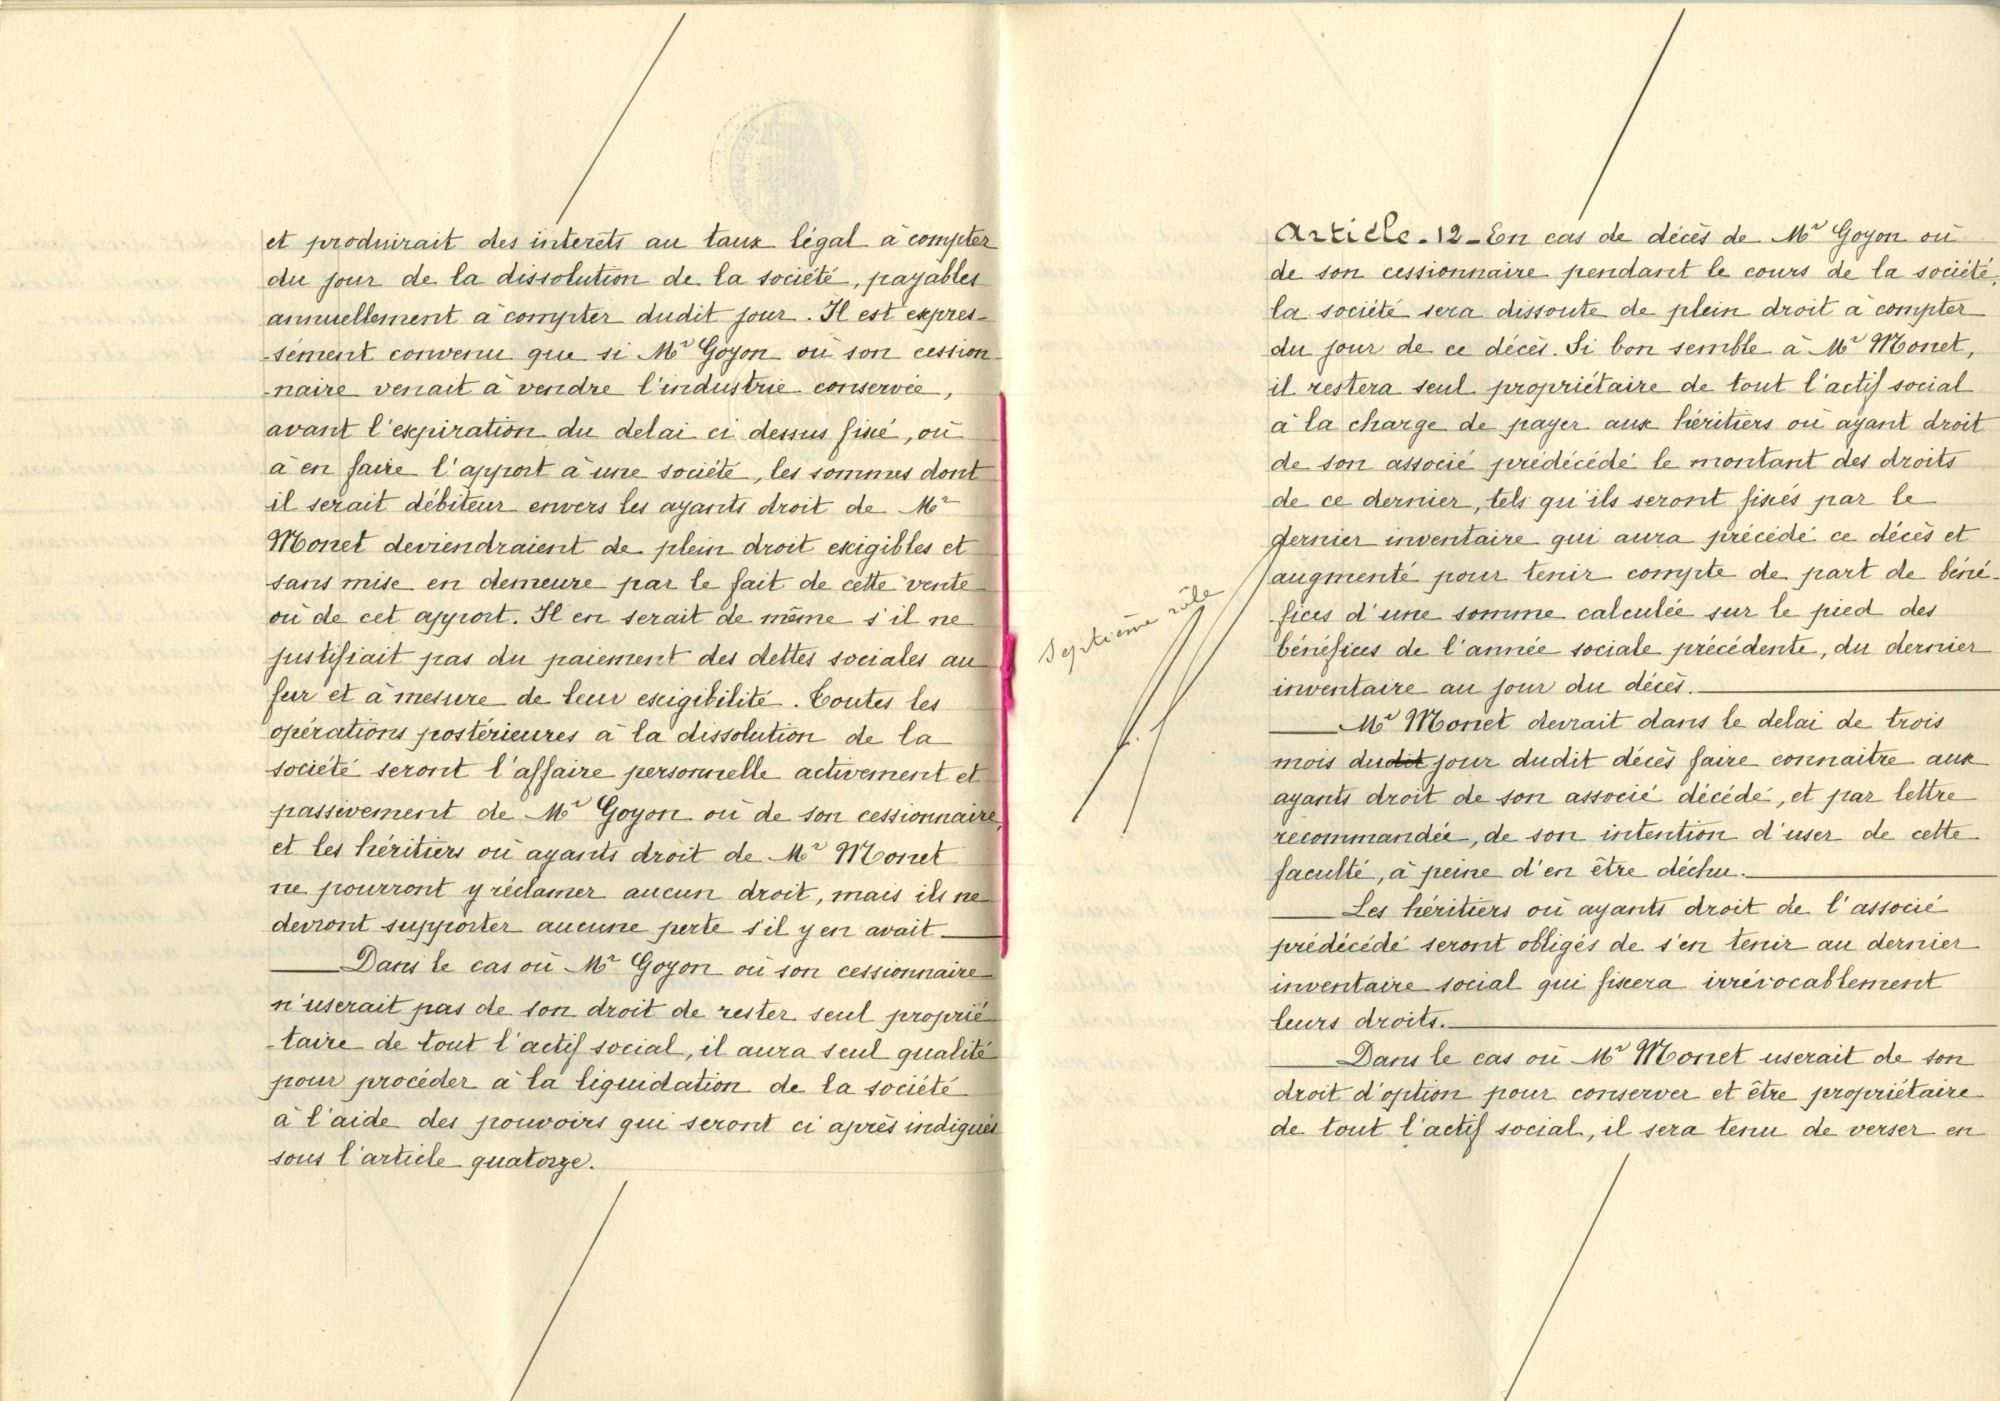 et produirait des interêts au taux légal à compter
du jour de la dissolution de la société, payables
annuellement à compter dudit jour. Il est expres-
-sément convenu que si Mr Goyon ou son cession-
-naire venait à vendre l'industrie conservée,
avant l'expiration du delai ci dessus fixé, ou
à en faire l'apport à une société, les sommes dont
il serait débiteur envers les ayants droit de Mr
Monet deviendraient de plein droit exigibles et
sans mise en demeure par le fait de cette vente
ou de cet apport. Il en serait de même s'il ne
justifiait pas du paiement des dettes sociales au
fur et à mesure de leur exigibilité. Toutes les
opérations postérieures à la dissolution de la
société seront l'affaire personnelle activement et
passivement de Mr Goyon ou de son cessionnaire,
et les héritiers ou ayants droit de Mr Monet
ne pourront y réclamer aucun droit, mais ils ne
devront supporter aucune perte s'il y en avait.
Dans le cas où Mr Goyon ou son cessionnaire
n'userait pas de son droit de rester seul proprié-
-taire de tout l'actif social, il aura seul qualité
pour procéder à la liquidation de la société
à l'aide des pouvoirs qui seront ci après indiqués
sous l'article quatorze.
Septième rôle
Article.12_En cas de décès de Mr Goyon ou
de son cessionnaire pendant le cours de la société,
la société sera dissoute de plein droit à compter
du jour de ce décès. Si bon semble à Mr Monet,
il restera seul propriétaire de tout l'actif social
à la charge de payer aux héritiers ou ayant droit
de son associé prédécédé le montant des droits
de ce dernier, tels qu'ils seront fixés par le
dernier inventaire qui aura précédé ce décès et
augmenté pour tenir compte de part de béné-
fices d'une somme calculée sur le pied des
bénéfices de l'année sociale précédente, du dernier
inventaire au jour du décès.
Mr Monet devrait dans le delai de trois
mois dudit jour dudit décès faire connaitre aux
ayants droit de son associé décédé, et par lettre
recommandée, de son intention d'user de cette
faculté, à peine d'en être déchu.
Les héritiers ou ayants droit de l'associé
prédécédé seront obligés de s'en tenir au dernier
inventaire social qui fixera irrévocablement
leurs droits.
Dans le cas où Mr Monet userait de son
droit d'option pour conserver et être propriétaire
de tout l'actif social, il sera tenu de verser en